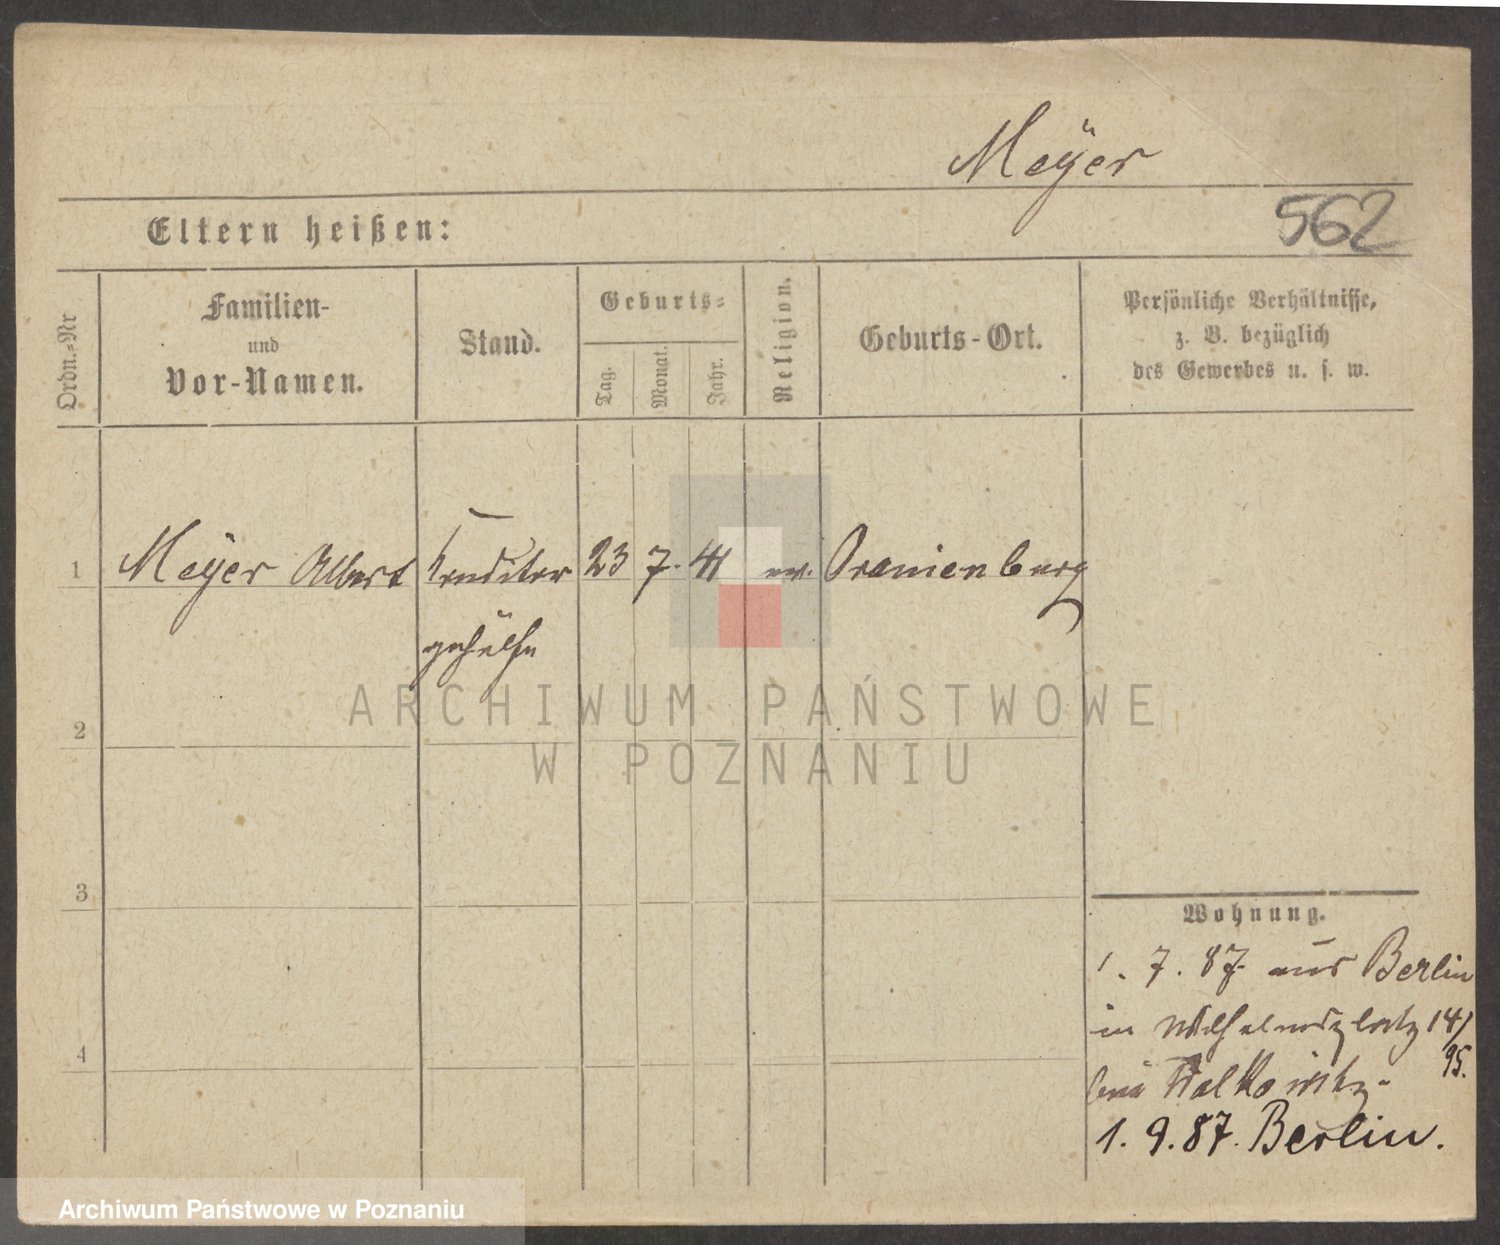 Meÿer
562
Eltern heißen:
Ordn.-Nr
Familien-
und
Vor-Namen.
Stand.
Geburts-
Tag.
Monat.
Jahr.
Religion.
Geburts-Ort.
Persönliche Verhältnisse,
z. B. bezüglich
des Gewerbes u. s. w.
1 Meÿer Albert Conditor 23 7. 41 ev. Oranienburg
gehülfe
ARCHIWUM PAŃSTWOWE
2
W POZNANIU
3
Wohnung.
1. 7. 87. aus Berlin
in Wilhelmsplatz 14/
95.
4
bei
1. 9. 87. Berlin.
Archiwum Państwowe w Poznaniu